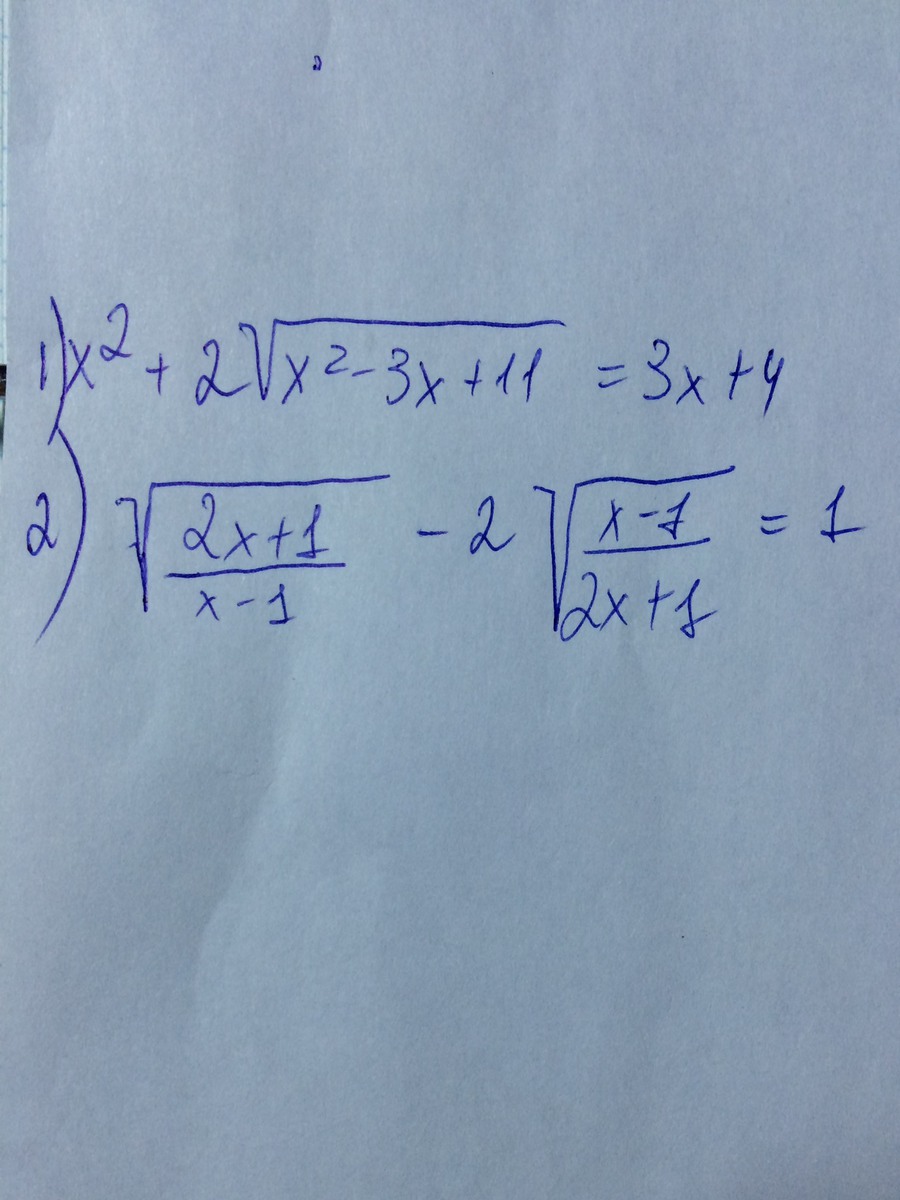 1) x² + 2√(x²-3x+11) = 3x+4
2) √((2x+1)/(x-1)) - 2√((x-1)/(2x+1)) = 1